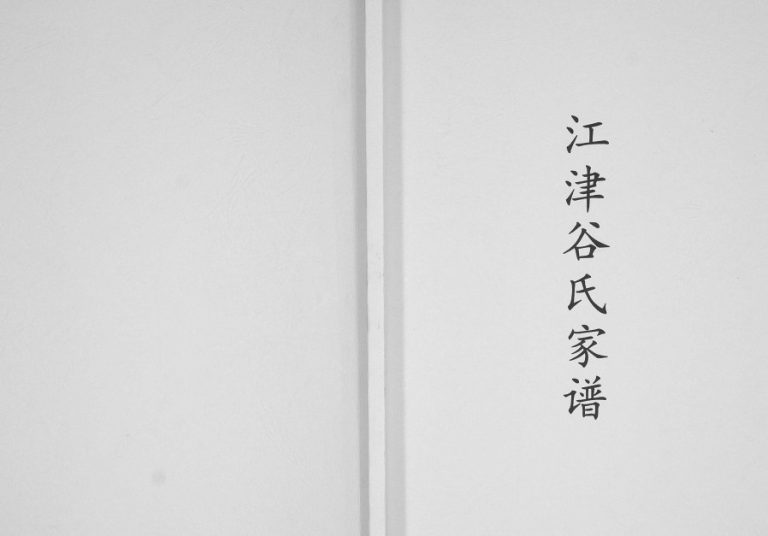 江津谷氏家谱